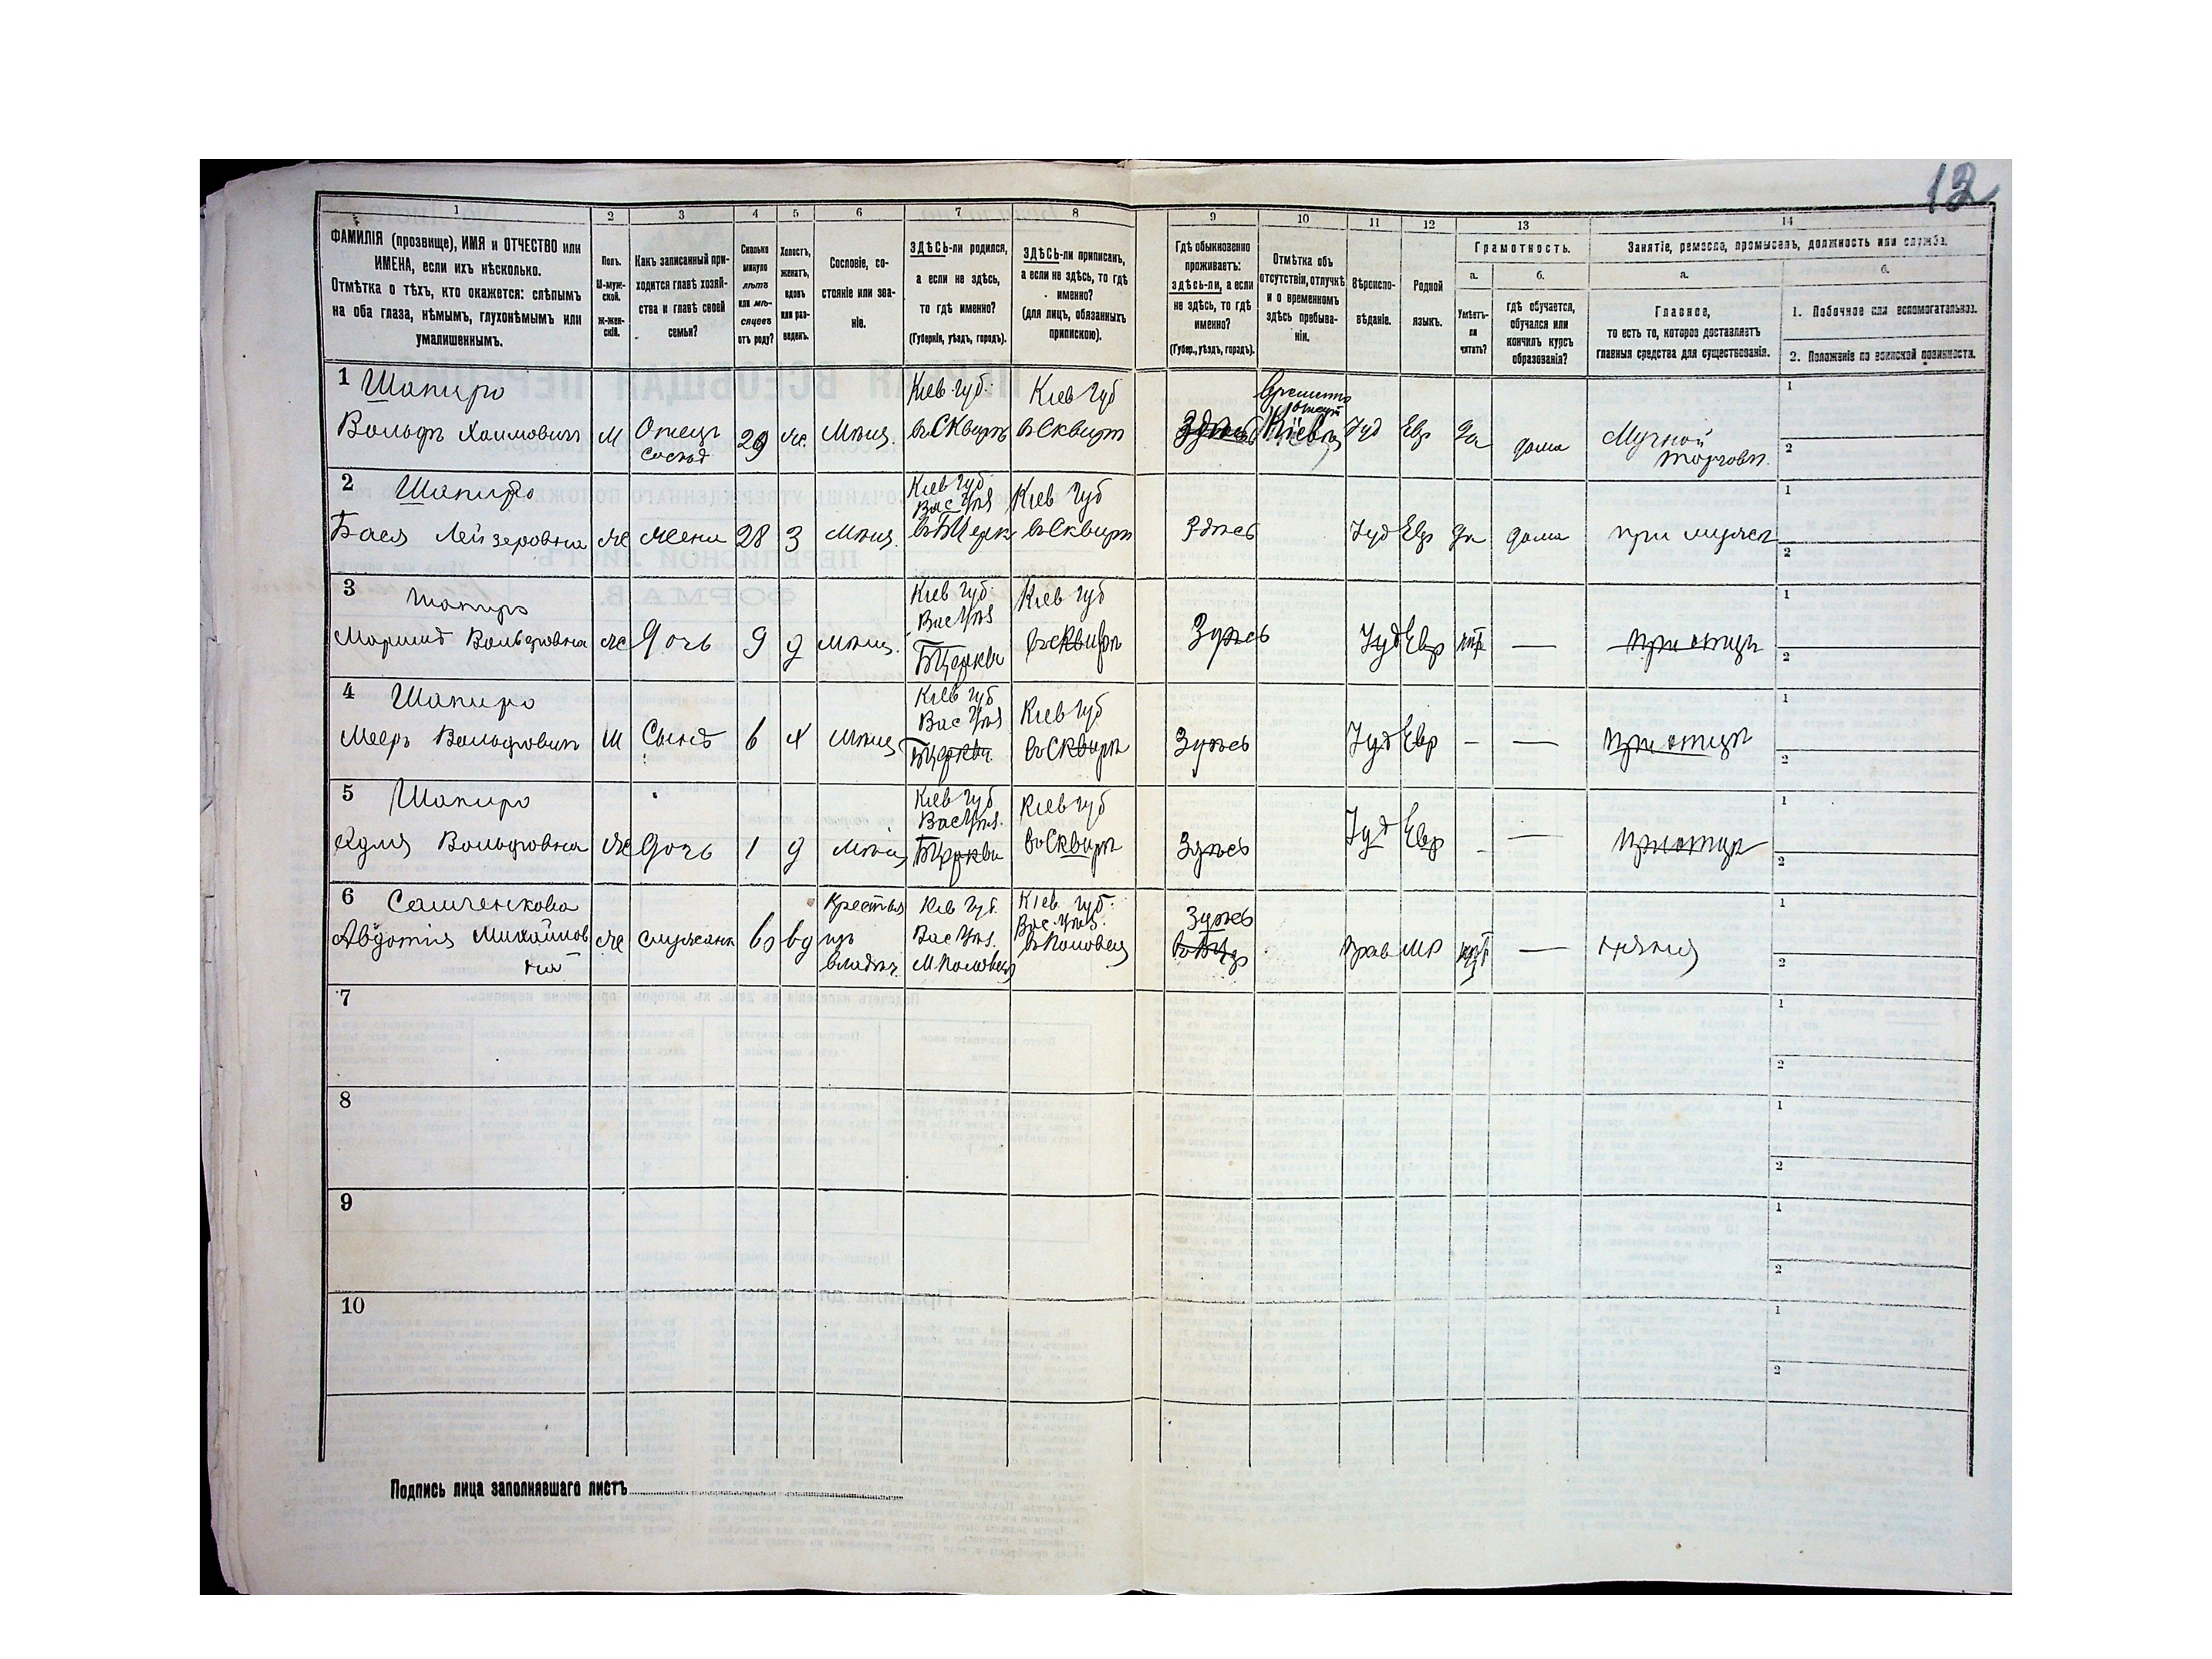 12
1 2 3 4 5 6 7 8 9 10 11 12 13 14
ФАМИЛІЯ (прозвище), ИМЯ и ОТЧЕСТВО или
ИМЕНА, если ихъ нѣсколько.
Отмѣтка о тѣхъ, кто окажется: слѣпымъ
на оба глаза, нѣмымъ, глухонѣмымъ или
умалишеннымъ.
Полъ.
М-муж-
ской.
ж-жен-
скій.
Какъ записанный при-
ходится главѣ хозяй-
ства и главѣ своей
семьи?
Сколько
минуло
лѣтъ
или мѣ-
сяцевъ
отъ роду?
Холостъ,
женатъ,
вдовъ
или раз-
веденъ.
Сословіе, со-
стояніе или зва-
ніе.
ЗДѢСЬ-ли родился,
а если не здѣсь,
то гдѣ именно?
(Губернія, уѣздъ, городъ).
ЗДѢСЬ-ли приписанъ,
а если не здѣсь, то гдѣ
именно?
(для лицъ, обязанныхъ
припискою).
Гдѣ обыкновенно
проживаетъ:
здѣсь-ли, а если
не здѣсь, то гдѣ
именно?
(Губер., уѣздъ, городъ).
Отмѣтка объ
отсутствіи, отлучкѣ
и о временномъ
здѣсь пребыва-
ніи.
Вѣроиспо-
вѣданіе.
Родной
языкъ.
Грамотность.
а.
Умѣетъ-
ли
читать?
б.
гдѣ обучается,
обучался или
кончилъ курсъ
образованія?
Занятіе, ремесло, промыселъ, должность или служба.
а.
Главное,
то есть то, которое доставляетъ
главныя средства для существованія.
б.
1. Побочное или вспомогательное.
2. Положеніе по воинской повинности.
1 Шапиро
Вольфъ Хаимовичъ М Отецъ 29 же. Мѣщ. Кіев губ. въ Сквирѣ Кіев губ въ Сквирѣ Здѣсь Кіевъ Іуд Евр да дома Мучной торговл.
1
2
2 Шапиро
Бася Лейзеровна Же Жена 28 З Мѣщ. Кіев губ. Вас Уѣз въ БЦерк Кіев губ въ Сквирѣ Здѣсь Іуд Евр да дома при мужѣ
1
2
3 Шапиро
Вольфовна Же Дочь 9 д Мѣщ. Кіев губ. Вас Уѣз БЦеркви Кіев губ въ Сквирѣ Здѣсь Іуд Евр нѣт — при отцѣ
1
2
4 Шапиро
Мееръ Вольфовичъ М Сынъ 6 х Мѣщ Кіев губ Вас Уѣз БЦеркви Кіев губ въ Сквирѣ Здѣсь Іуд Евр - — при отцѣ
1
2
5 Шапиро
Вольфовна Же Дочь 1 д Мѣщ Кіев губ. Вас Уѣз. БЦеркви Кіев губ въ Сквирѣ Здѣсь Іуд Евр - — при отцѣ
1
2
6
Авдотія Михайлов
на Же служанк 60 вд Крестья изъ владѣл. Кіев губ. Вас Уѣз. М Половецъ Кіев губ. Вас. Уѣз. въ Половецъ Здѣсь Прав МР нѣт — няня
1
2
7
1
2
8
1
2
9
1
2
10
1
2
Подпись лица заполнявшаго листъ